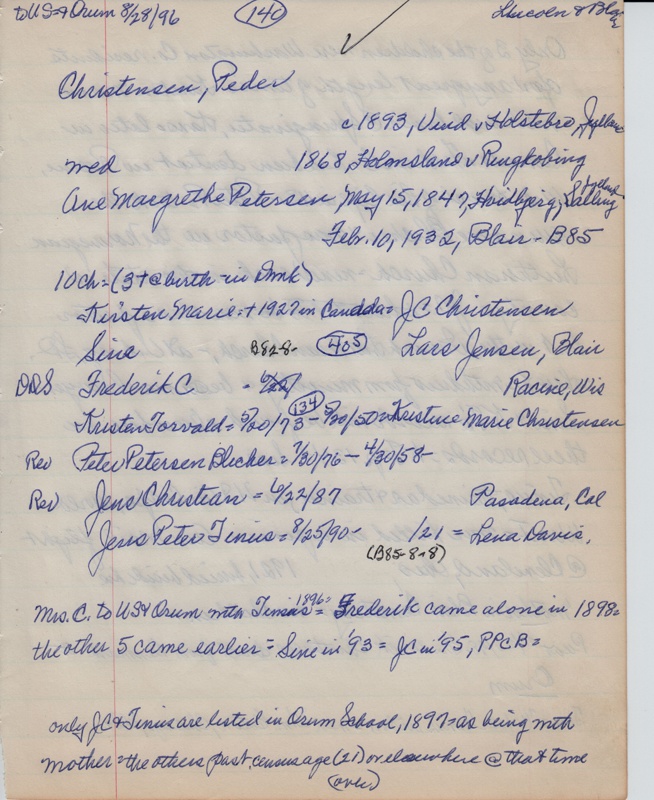 to US & Orum 8/28/96 140 Lincoln & Blair
Christensen, Peder
c 1893, Vind v Holstebro, Jylland
med 1868, Holmsland v Ringkobing
Ane Margrethe Petersen, May 15, 1847, Hvidbjerg, Salling Jylland
Feb. 10, 1932, Blair - B85
10 ch = (3 + @ birth - in Dmk)
Kirsten Marie = + 1927 in Canada = J C Christensen
Sine B82-8- 405 Lars Jensen, Blair
DDS Frederik C - Racine, Wis
134
Kristen Torvald = 5/20/73 - 5/20/50 = Kristine Marie Christensen
Rev Peter Petersen Blicher = 7/30/76 - 4/30/58 -
Rev Jens Christian = 6/22/87 Pasadena, Cal
Jens Peter Tinius = 8/25/90 - /21 = Lena Davis,
(B85-8-8)
Mrs. C. to US & Orum with Tinius 1896 = Frederik came alone in 1898 =
the other 5 came earlier = Sine in '93 = JC in '95, PPCB =
only JC & Tinius are listed in Orum School, 1897 = as being with
mother = the others past census age (21) or elsewhere @ that time
(over)